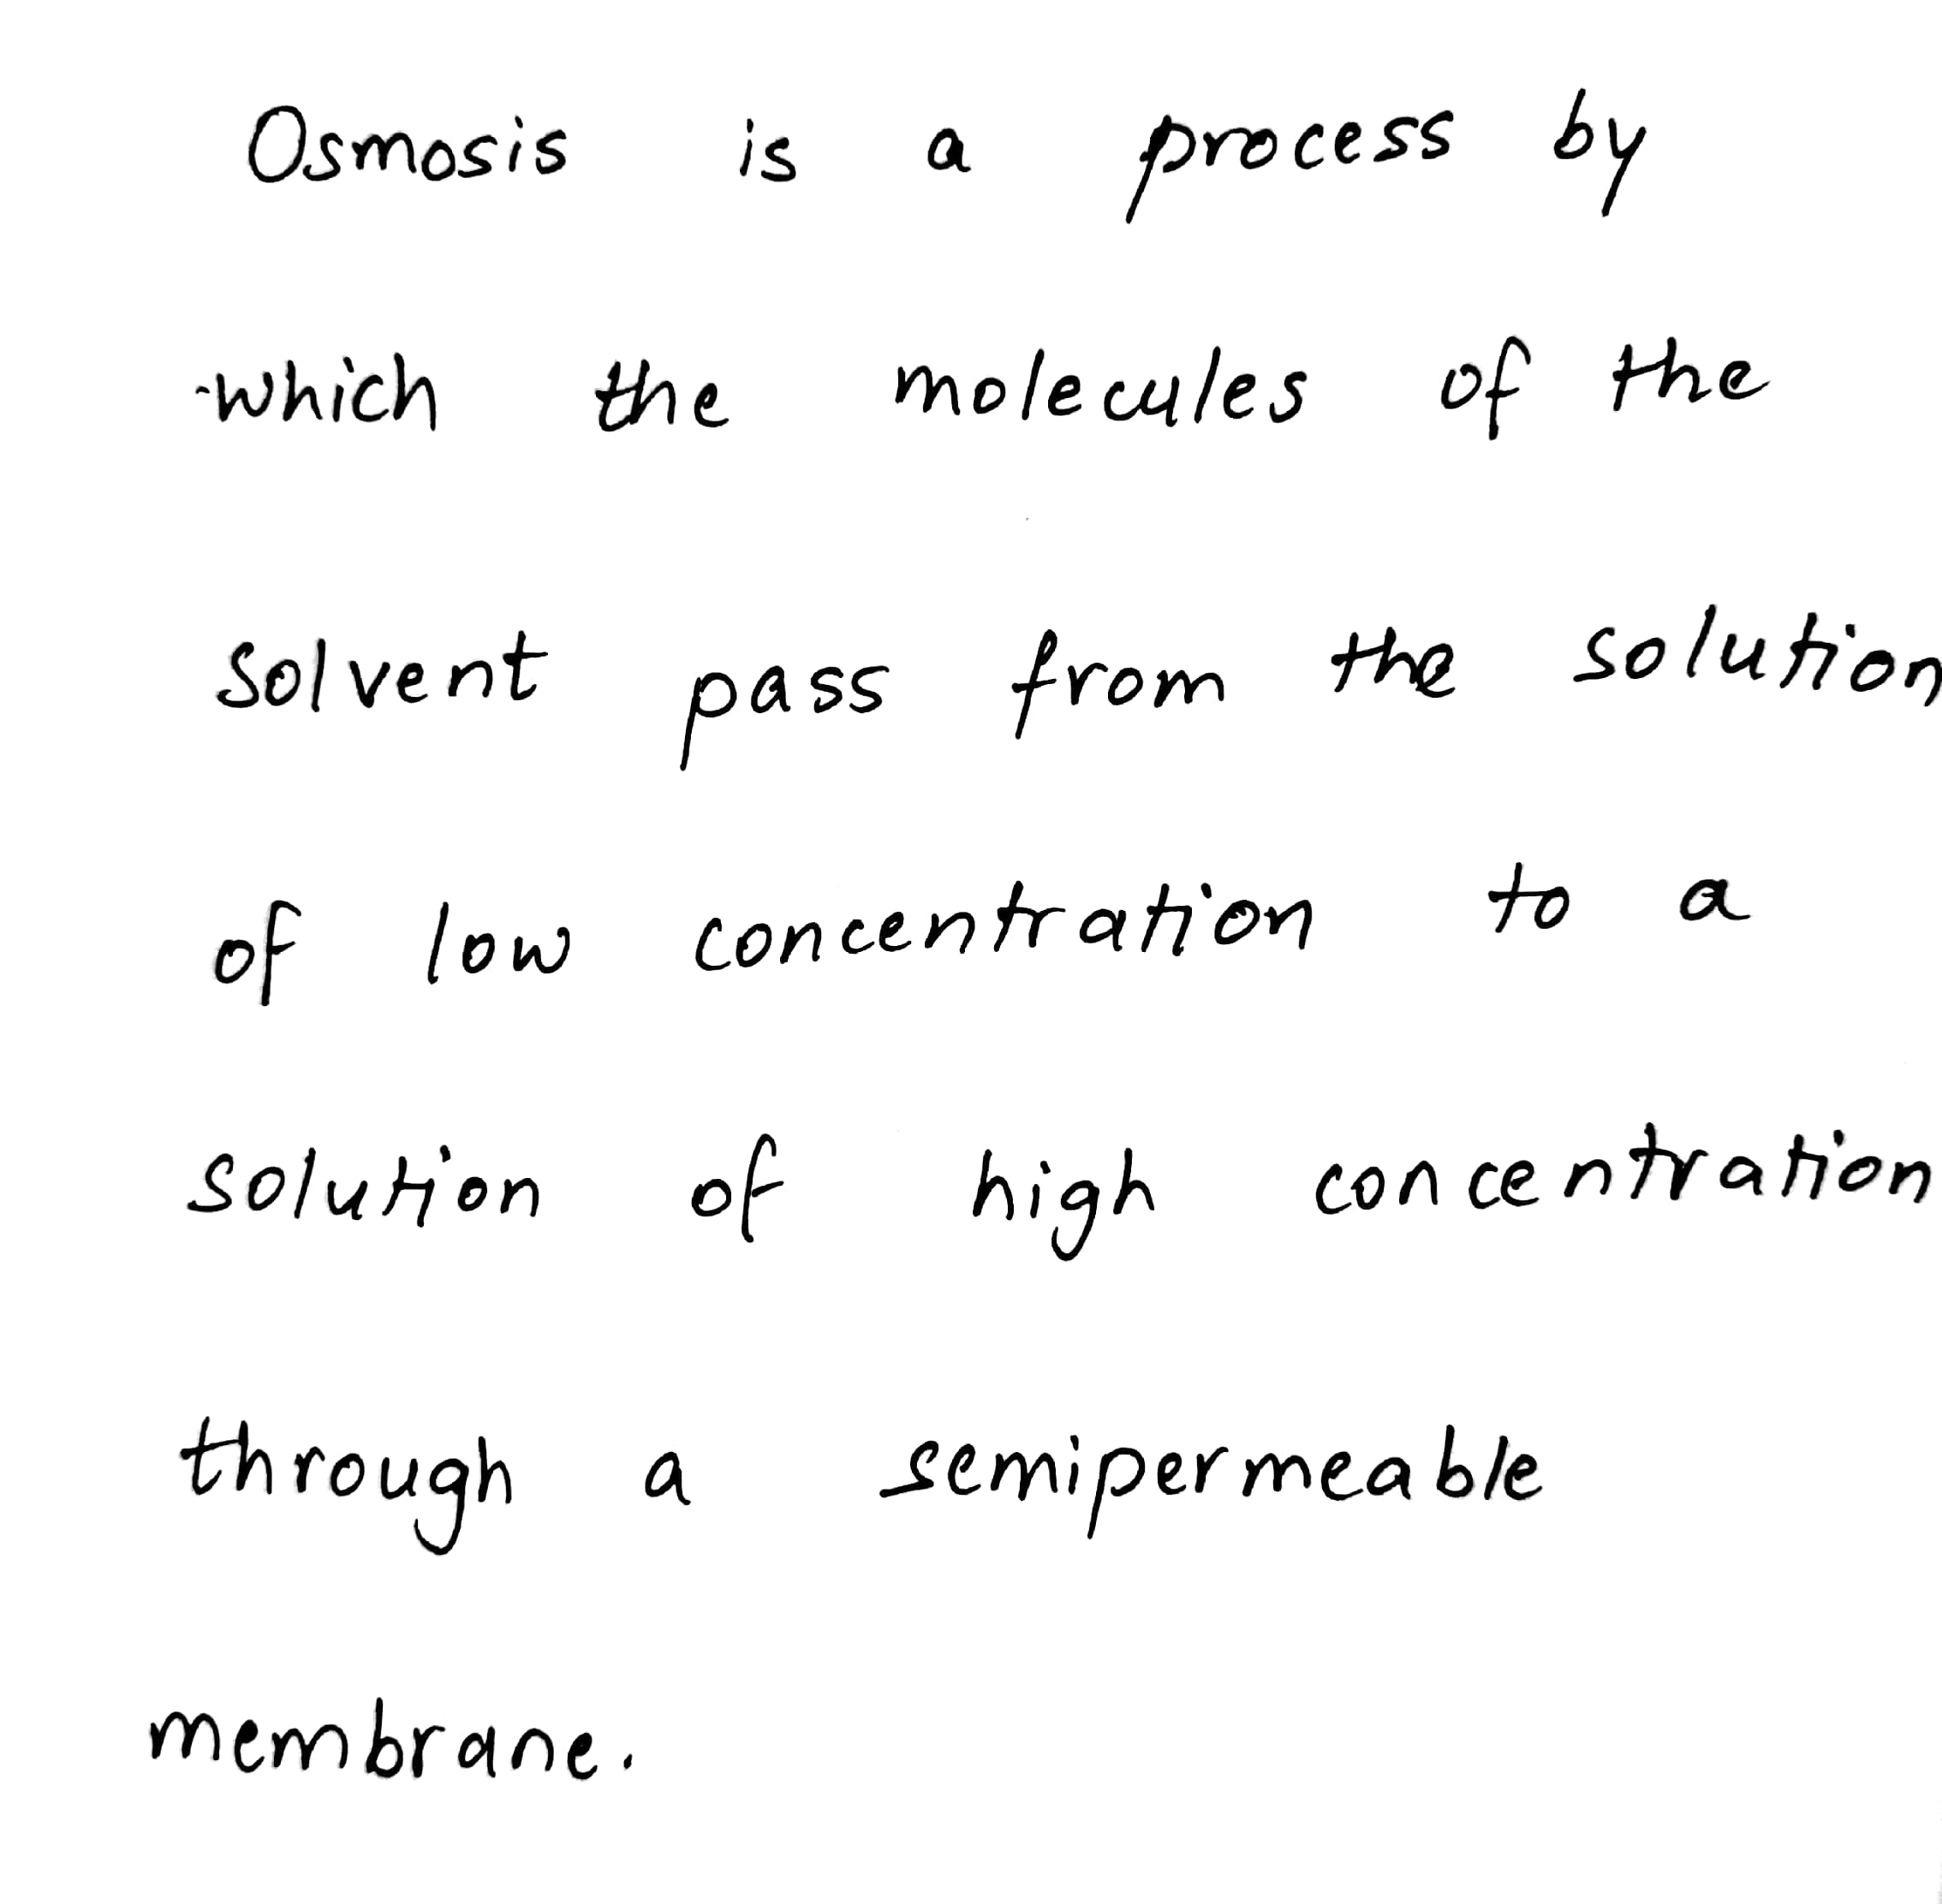 Osmosis is a process by
which the molecules of the
solvent pass from the solution
of low concentration to a
solution of high concentration
through a semipermeable
membrane.